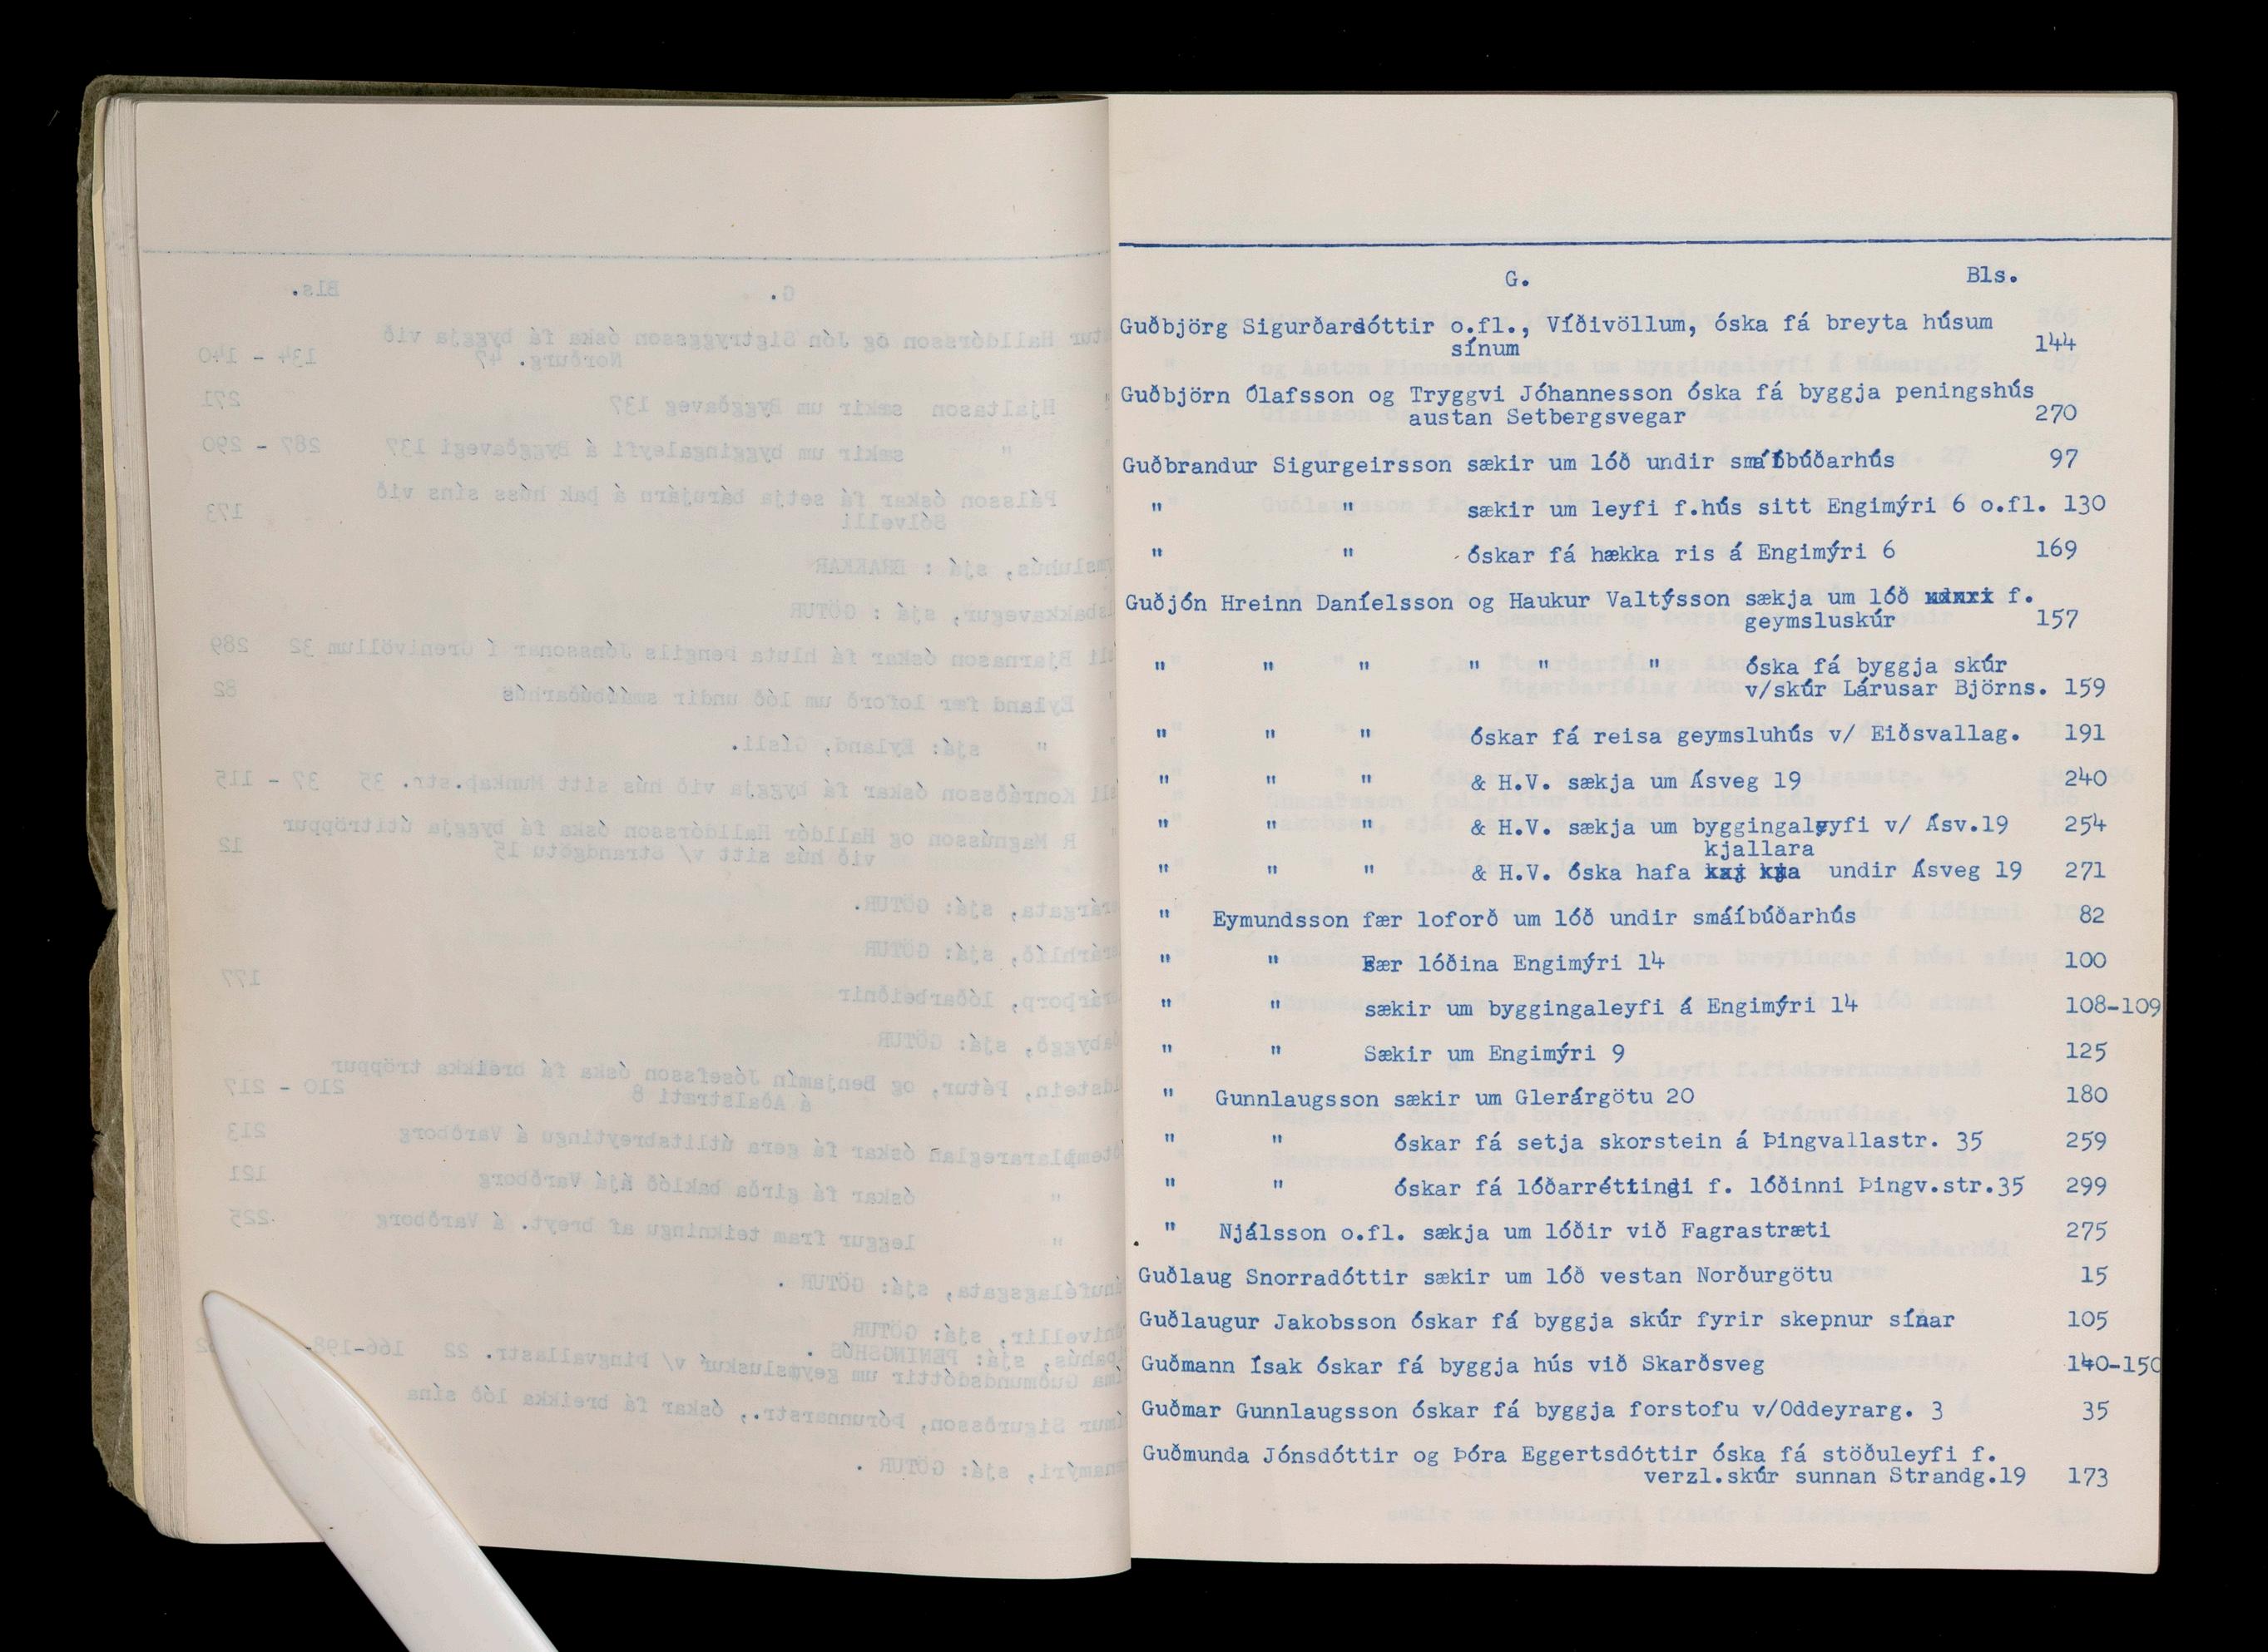 G. Bls.
Guðbjörg Sigurðardóttir o.fl., Víðivöllum, óska fá breyta húsum
sínum 144
Guðbjörn Ólafsson og Tryggvi Jóhannesson óska fá byggja peningshús
austan Setbergsvegar 270
Guðbrandur Sigurgeirsson sækir um lóð undir smáíbúðarhús 97
" " sækir um leyfi f.hús sitt Engimýri 6 o.fl. 130
" " óskar fá hækka ris á Engimýri 6 169
Guðjón Hreinn Daníelsson og Haukur Valtýsson sækja um lóð f.
geymsluskúr 157
" " " " " " óska fá byggja skúr
v/skúr Lárusar Björns. 159
" " " óskar fá reisa geymsluhús v/ Eiðsvallag. 191
" " " & H.V. sækja um Ásveg 19 240
" " " & H.V. sækja um byggingaleyfi v/ Ásv.19 254
kjallara
" " " & H.V. óska hafa undir Ásveg 19 271
" Eymundsson fær loforð um lóð undir smáíbúðarhús 82
" " Fær lóðina Engimýri 14 100
" " sækir um byggingaleyfi á Engimýri 14 108-109
" " Sækir um Engimýri 9 125
" Gunnlaugsson sækir um Glerárgötu 20 180
" " óskar fá setja skorstein á Þingvallastr. 35 259
" " óskar fá lóðarréttindi f. lóðinni Þingv.str.35 299
" Njálsson o.fl. sækja um lóðir við Fagrastræti 275
Guðlaug Snorradóttir sækir um lóð vestan Norðurgötu 15
Guðlaugur Jakobsson óskar fá byggja skúr fyrir skepnur sínar 105
Guðmann Ísak óskar fá byggja hús við Skarðsveg 140-150
Guðmar Gunnlaugsson óskar fá byggja forstofu v/Oddeyrarg. 3 35
Guðmunda Jónsdóttir og Þóra Eggertsdóttir óska fá stöðuleyfi f.
verzl.skúr sunnan Strandg.19 173